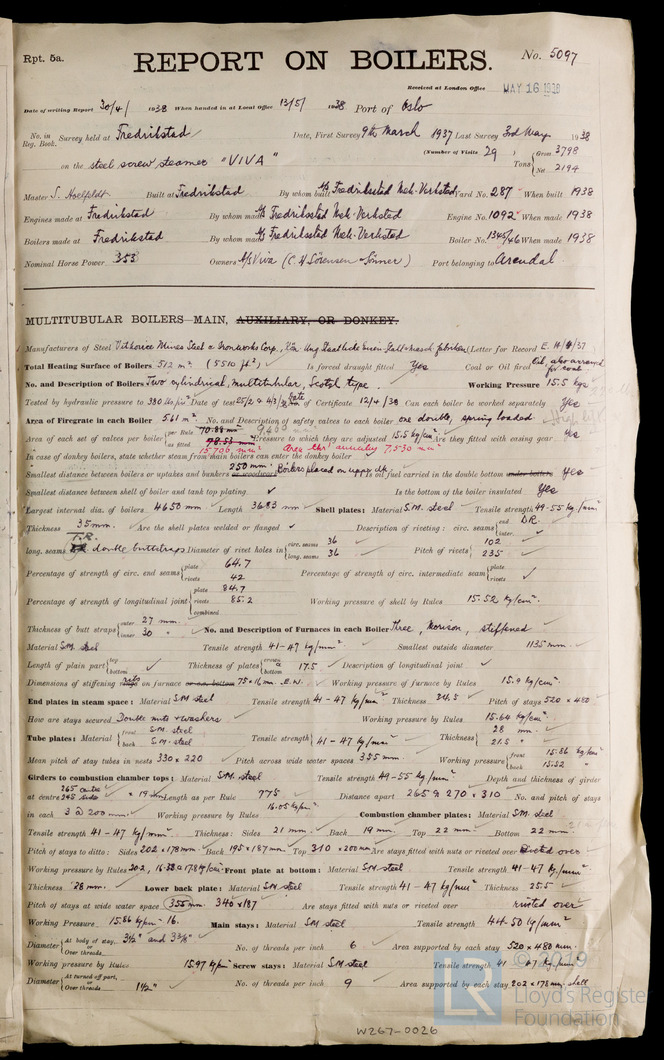 Rpt. 5a.
REPORT ON BOILERS.
No. 5097
Received at London Office MAY 16 1938
Date of writing Report 30/4/ 1938 When handed in at Local Office 13/5/ 1938 Port of Oslo
No. in Reg. Book. Survey held at Fredrikstad Date, First Survey 9th March 1937 Last Survey 3rd May 1938
(Number of Visits 29 )
on the steel screw steamer "VIVA" Tons { Gross 3798 Net 2194
Master Built at Fredrikstad By whom built A/S Fredriksstad Mek. Verksted Yard No. 287 When built 1938
Engines made at Fredrikstad By whom made A/S Fredriksstad Mek. Verksted Engine No. 1092 When made 1938
Boilers made at Fredrikstad By whom made A/S Fredriksstad Mek. Verksted Boiler No. 1345/46 When made 1938
Nominal Horse Power 353 Owners A/S Viva (C. H. Sörensen & Sönner) Port belonging to Arendal
MULTITUBULAR BOILERS MAIN, AUXILIARY, OR DONKEY.
Manufacturers of Steel Vitkovice Mines Steel & Ironworks Corp., (Letter for Record
Total Heating Surface of Boilers 512 m² (5510 ft²) Is forced draught fitted Yes Coal or Oil fired Oil, also arranged for coal
No. and Description of Boilers Two cylindrical, multitubular, Scotch type. Working Pressure 15.5 kgs
Tested by hydraulic pressure to Date of test No. of Certificate 12/4/38 Can each boiler be worked separately Yes
Area of Firegrate in each Boiler 5.61 m² No. and Description of safety valves to each boiler one double, spring loaded
Area of each set of valves per boiler { per Rule as fitted 15706 mm² Pressure to which they are adjusted 15.5 kg/cm² Are they fitted with easing gear Yes
In case of donkey boilers, state whether steam from main boilers can enter the donkey boiler
Smallest distance between boilers or uptakes and bunkers or woodwork 250 mm. Boilers placed on upper dk. Is oil fuel carried in the double bottom under boilers Yes
Smallest distance between shell of boiler and tank top plating ✓ Is the bottom of the boiler insulated Yes
Largest internal dia. of boilers 4650 mm. Length 3683 mm Shell plates: Material S.M. steel Tensile strength 49-55 kg/mm²
Thickness 35 mm. Are the shell plates welded or flanged ✓ Description of riveting: circ. seams { end D.R. inter. ✓
long. seams T.R. double buttstraps Diameter of rivet holes in { circ. seams 36 long. seams 36 Pitch of rivets { 102 235
Percentage of strength of circ. end seams { plate 64.7 rivets 42 Percentage of strength of circ. intermediate seam { plate rivets ✓
Percentage of strength of longitudinal joint { plate 84.7 rivets 85.2 combined Working pressure of shell by Rules 15.52 kg/cm².
Thickness of butt straps { outer 27 mm. inner 30 " No. and Description of Furnaces in each Boiler three, Morison, stiffened
Material S.M. steel Tensile strength 41-47 kg/mm² Smallest outside diameter 1135 mm.
Length of plain part { top bottom ✓ Thickness of plates { crown bottom 17.5 Description of longitudinal joint ✓
Dimensions of stiffening rings on furnace or c.c. bottom 75 x 16 mm. E.W. Working pressure of furnace by Rules 15.9 kg/cm².
End plates in steam space: Material S.M. steel Tensile strength 41-47 kg/mm² Thickness 24.5 Pitch of stays 520 x 480
How are stays secured Double nuts & washers Working pressure by Rules 15.64 kg/cm².
Tube plates: Material { front S.M. steel back S.M. steel Tensile strength { 41-47 kg/mm² Thickness { 28 mm. 21.5 "
Mean pitch of stay tubes in nests 330 x 220 Pitch across wide water spaces 355 mm. Working pressure { front 15.86 kg/cm² back 15.52 "
Girders to combustion chamber tops: Material S.M. steel Tensile strength 49-55 kg/mm² Depth and thickness of girder
at centre 265 centre x 19 mm Length as per Rule 775 Distance apart 265 & 270 x 310 No. and pitch of stays
in each 3 @ 200 mm. Working pressure by Rules 16.05 kg/cm² Combustion chamber plates: Material S.M. steel
Tensile strength 41-47 kg/mm² Thickness: Sides 21 mm. Back 19 mm. Top 22 mm. Bottom 22 mm.
Pitch of stays to ditto: Sides 202 x 178 mm. Back 195 x 187 mm. Top 310 x 200 mm Are stays fitted with nuts or riveted over riveted over
Working pressure by Rules Front plate at bottom: Material S.M. steel Tensile strength 41-47 kg/mm²
Thickness 28 mm. Lower back plate: Material S.M. steel Tensile strength 41-47 kg/mm² Thickness 25.5
Pitch of stays at wide water space 355 mm. 340 x 187 Are stays fitted with nuts or riveted over riveted over
Working Pressure 15.86 kg/cm² 16. Main stays: Material S.M. steel Tensile strength 44-50 kg/mm²
Diameter { At body of stay, or Over threads 3½" and 3⅜" No. of threads per inch 6 Area supported by each stay 520 x 480 mm.
Working pressure by Rules 15.97 kg/cm² Screw stays: Material S.M. steel Tensile strength 41 47 kg/mm²
Diameter { At turned off part, or Over threads 1½" No. of threads per inch 9 Area supported by each stay 202 x 178 mm. shell
© 2019
LR
Lloyd's Register
Foundation
W267-0026